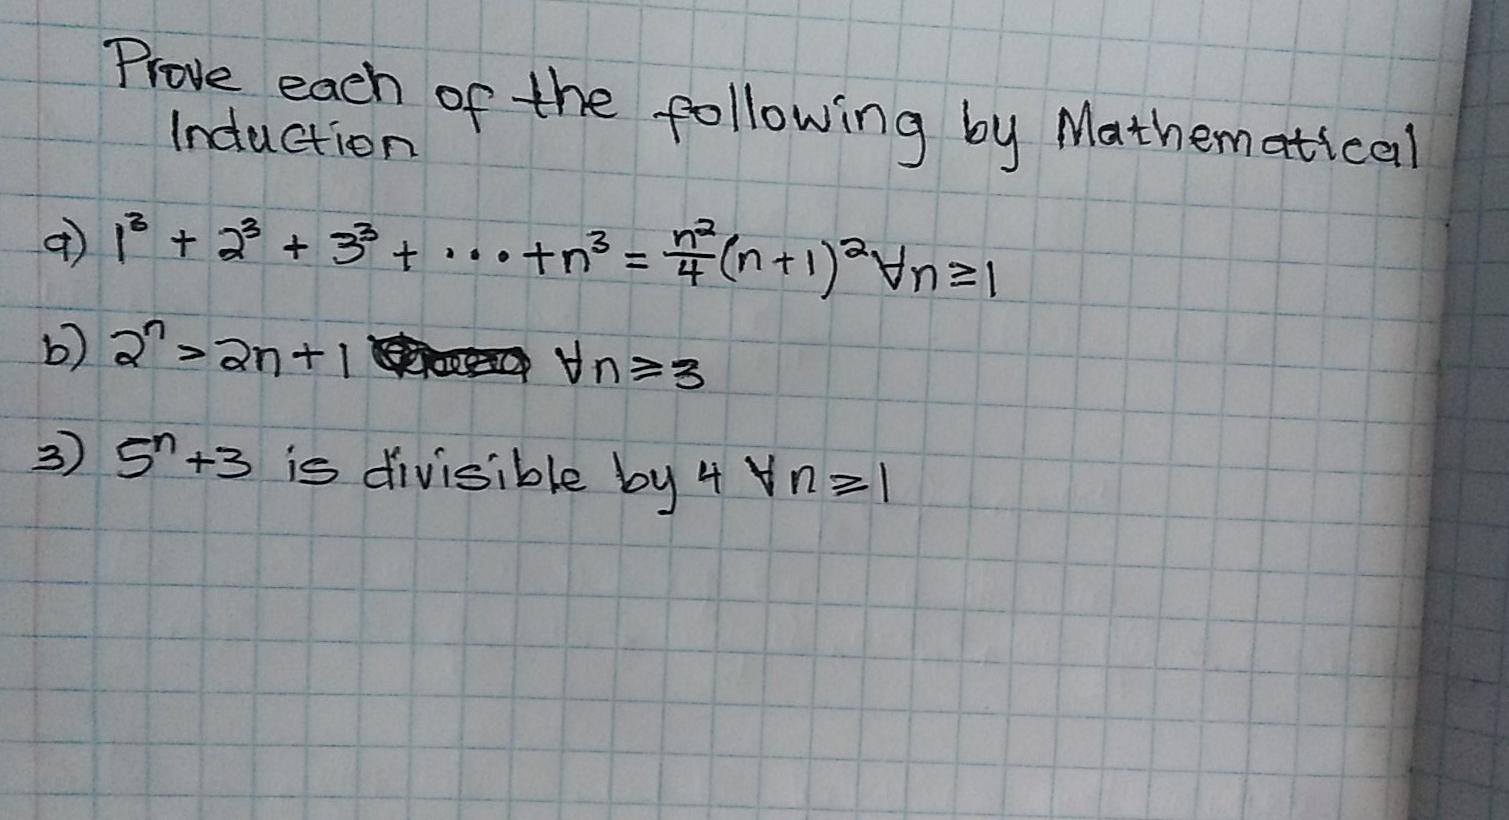 Prove each of the following by Mathematical
Induction
a) 1³ + 2³ + 3³ + ... + n³ = n²/4 (n+1)² ∀n≥1
b) 2ⁿ > 2n+1 ∀n≥3
3) 5ⁿ+3 is divisible by 4 ∀n≥1